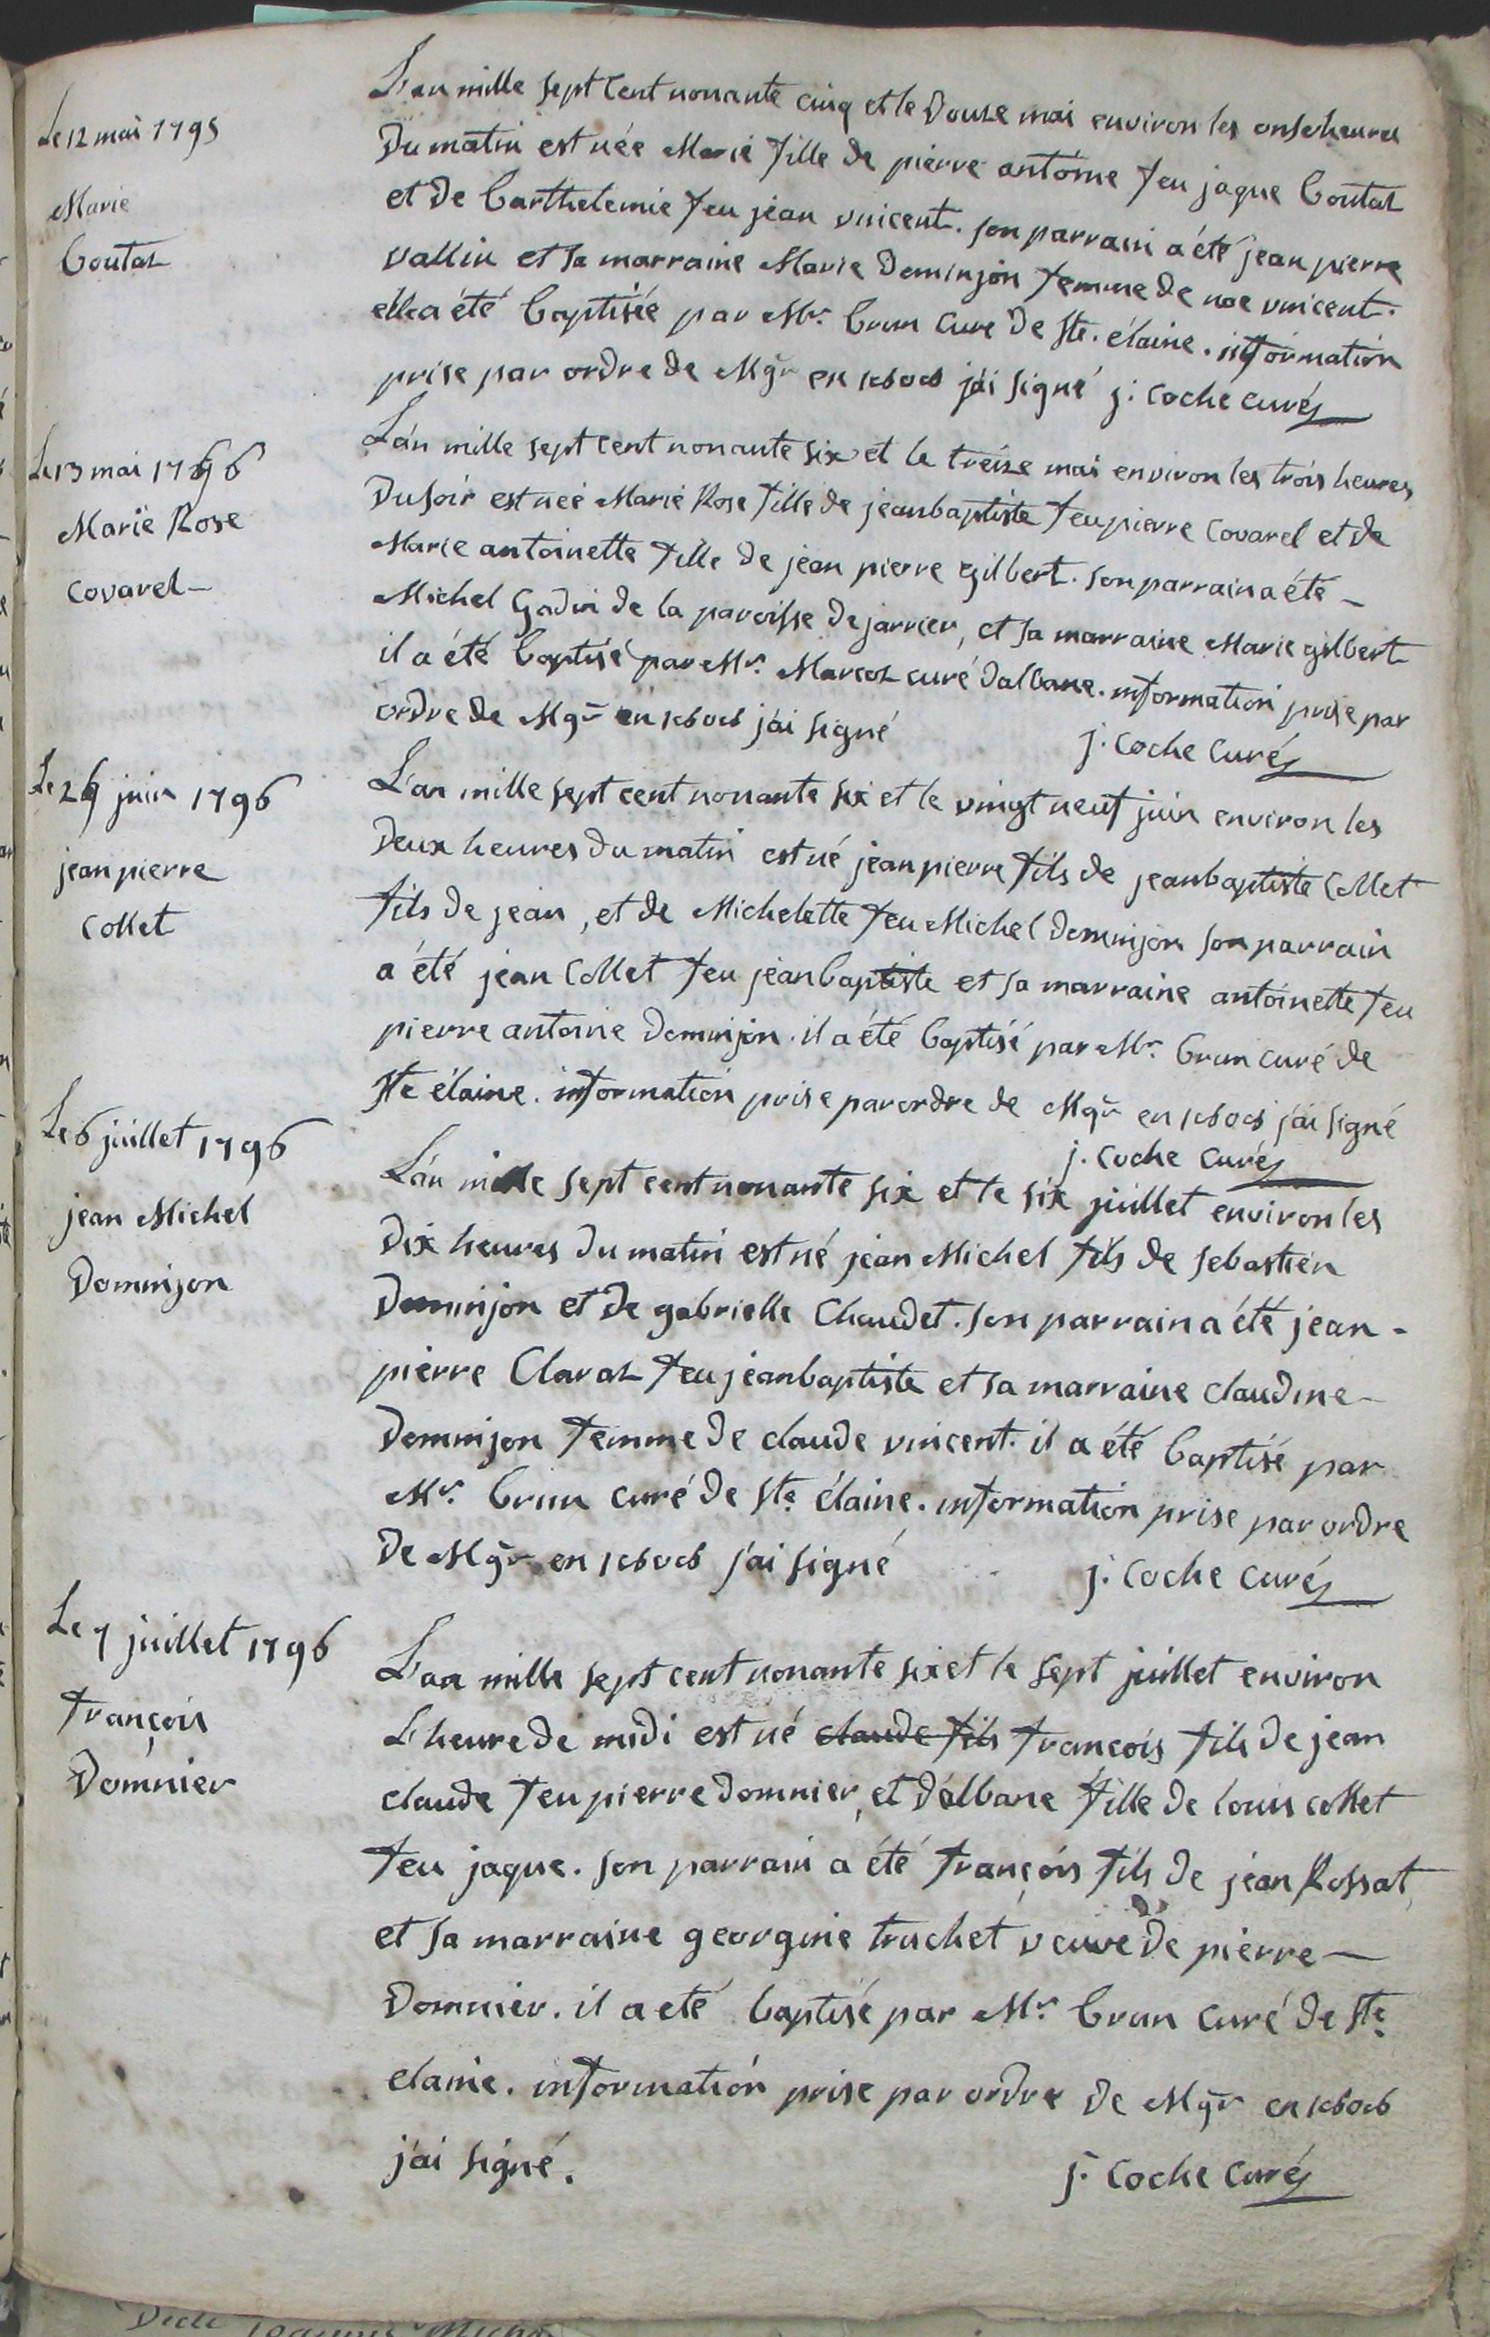 Le 12 mai 1795
Marie
boutaz
L'an mille sept cent nonante cinq et le douze mai environ les onse heures
du matin est née Marie fille de pierre antoine feu jaque boutaz
et de barthelemie feu jean vincent. son parrain a été jean pierre
vallin et sa marraine Marie dominjon femme de noe vincent.
élle a été baptisée par Mr. brun curé de ste. élaine. information
prise par ordre de Mgr en j'ai signé j. coche curé
Le 13 mai 1796
Marie Rose
covarel
L'an mille sept cent nonante six et le treize mai environ les trois heures
du soir est neé Marie Rose fille de jeanbaptiste feu pierre covarel et de
Marie antoinette fille de jean pierre gilbert. son parrain a été
Michel Gadin de la paroisse de jarrier, et sa marraine Marie gilbert
il a été baptisé par Mr. Marcoz curé dalbane. information prise par
ordre de Mgr en j'ai signé
j. coche curé
Le 29 juin 1796
jean pierre
collet
L'an mille sept cent nonante six et le vingt neuf juin environ les
deux heures du matin est né jean pierre fils de jeanbaptiste collet
fils de jean, et de Michelette feu Michel dominjon son parrain
a été jean collet feu jeanbaptiste et sa marraine antoinette feu
pierre antoine dominjon. il a été baptisé par Mr. brun curé de
ste élaine. information prise par ordre de Mgr en j'ai signé
j. coche curé
Le 6 juillet 1796
jean Michel
Dominjon
L'an mille sept cent nonante six et le six juillet environ les
dix heures du matin est né jean Michel fils de sebastien
dominjon et de gabrielle chaudet. son parrain a été jean -
pierre Claraz feu jeanbaptiste et sa marraine claudine
dominjon femme de claude vincent. il a été baptisé par
Mr. brun curé de ste élaine. information prise par ordre
de Mgr en j'ai signé
j. coche curé
Le 7 juillet 1796
françois
Domnier
L'an mille sept cent nonante six et le sept juillet environ
L'heure de midi est né claude fils françois fils de jean
claude feu pierre domnier, et d'albane fille de louis collet
feu jaque. son parrain a été françois fils de jean Rossat,
et sa marraine georgine truchet veuve de pierre
Domnier. il a eté baptisé par Mr. brun curé de ste
elaine. information prise par ordre de Mgr en
j'ai signé.
j. coche curé